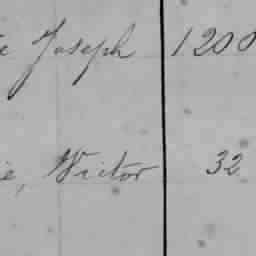 Joseph 1200
Victor 32